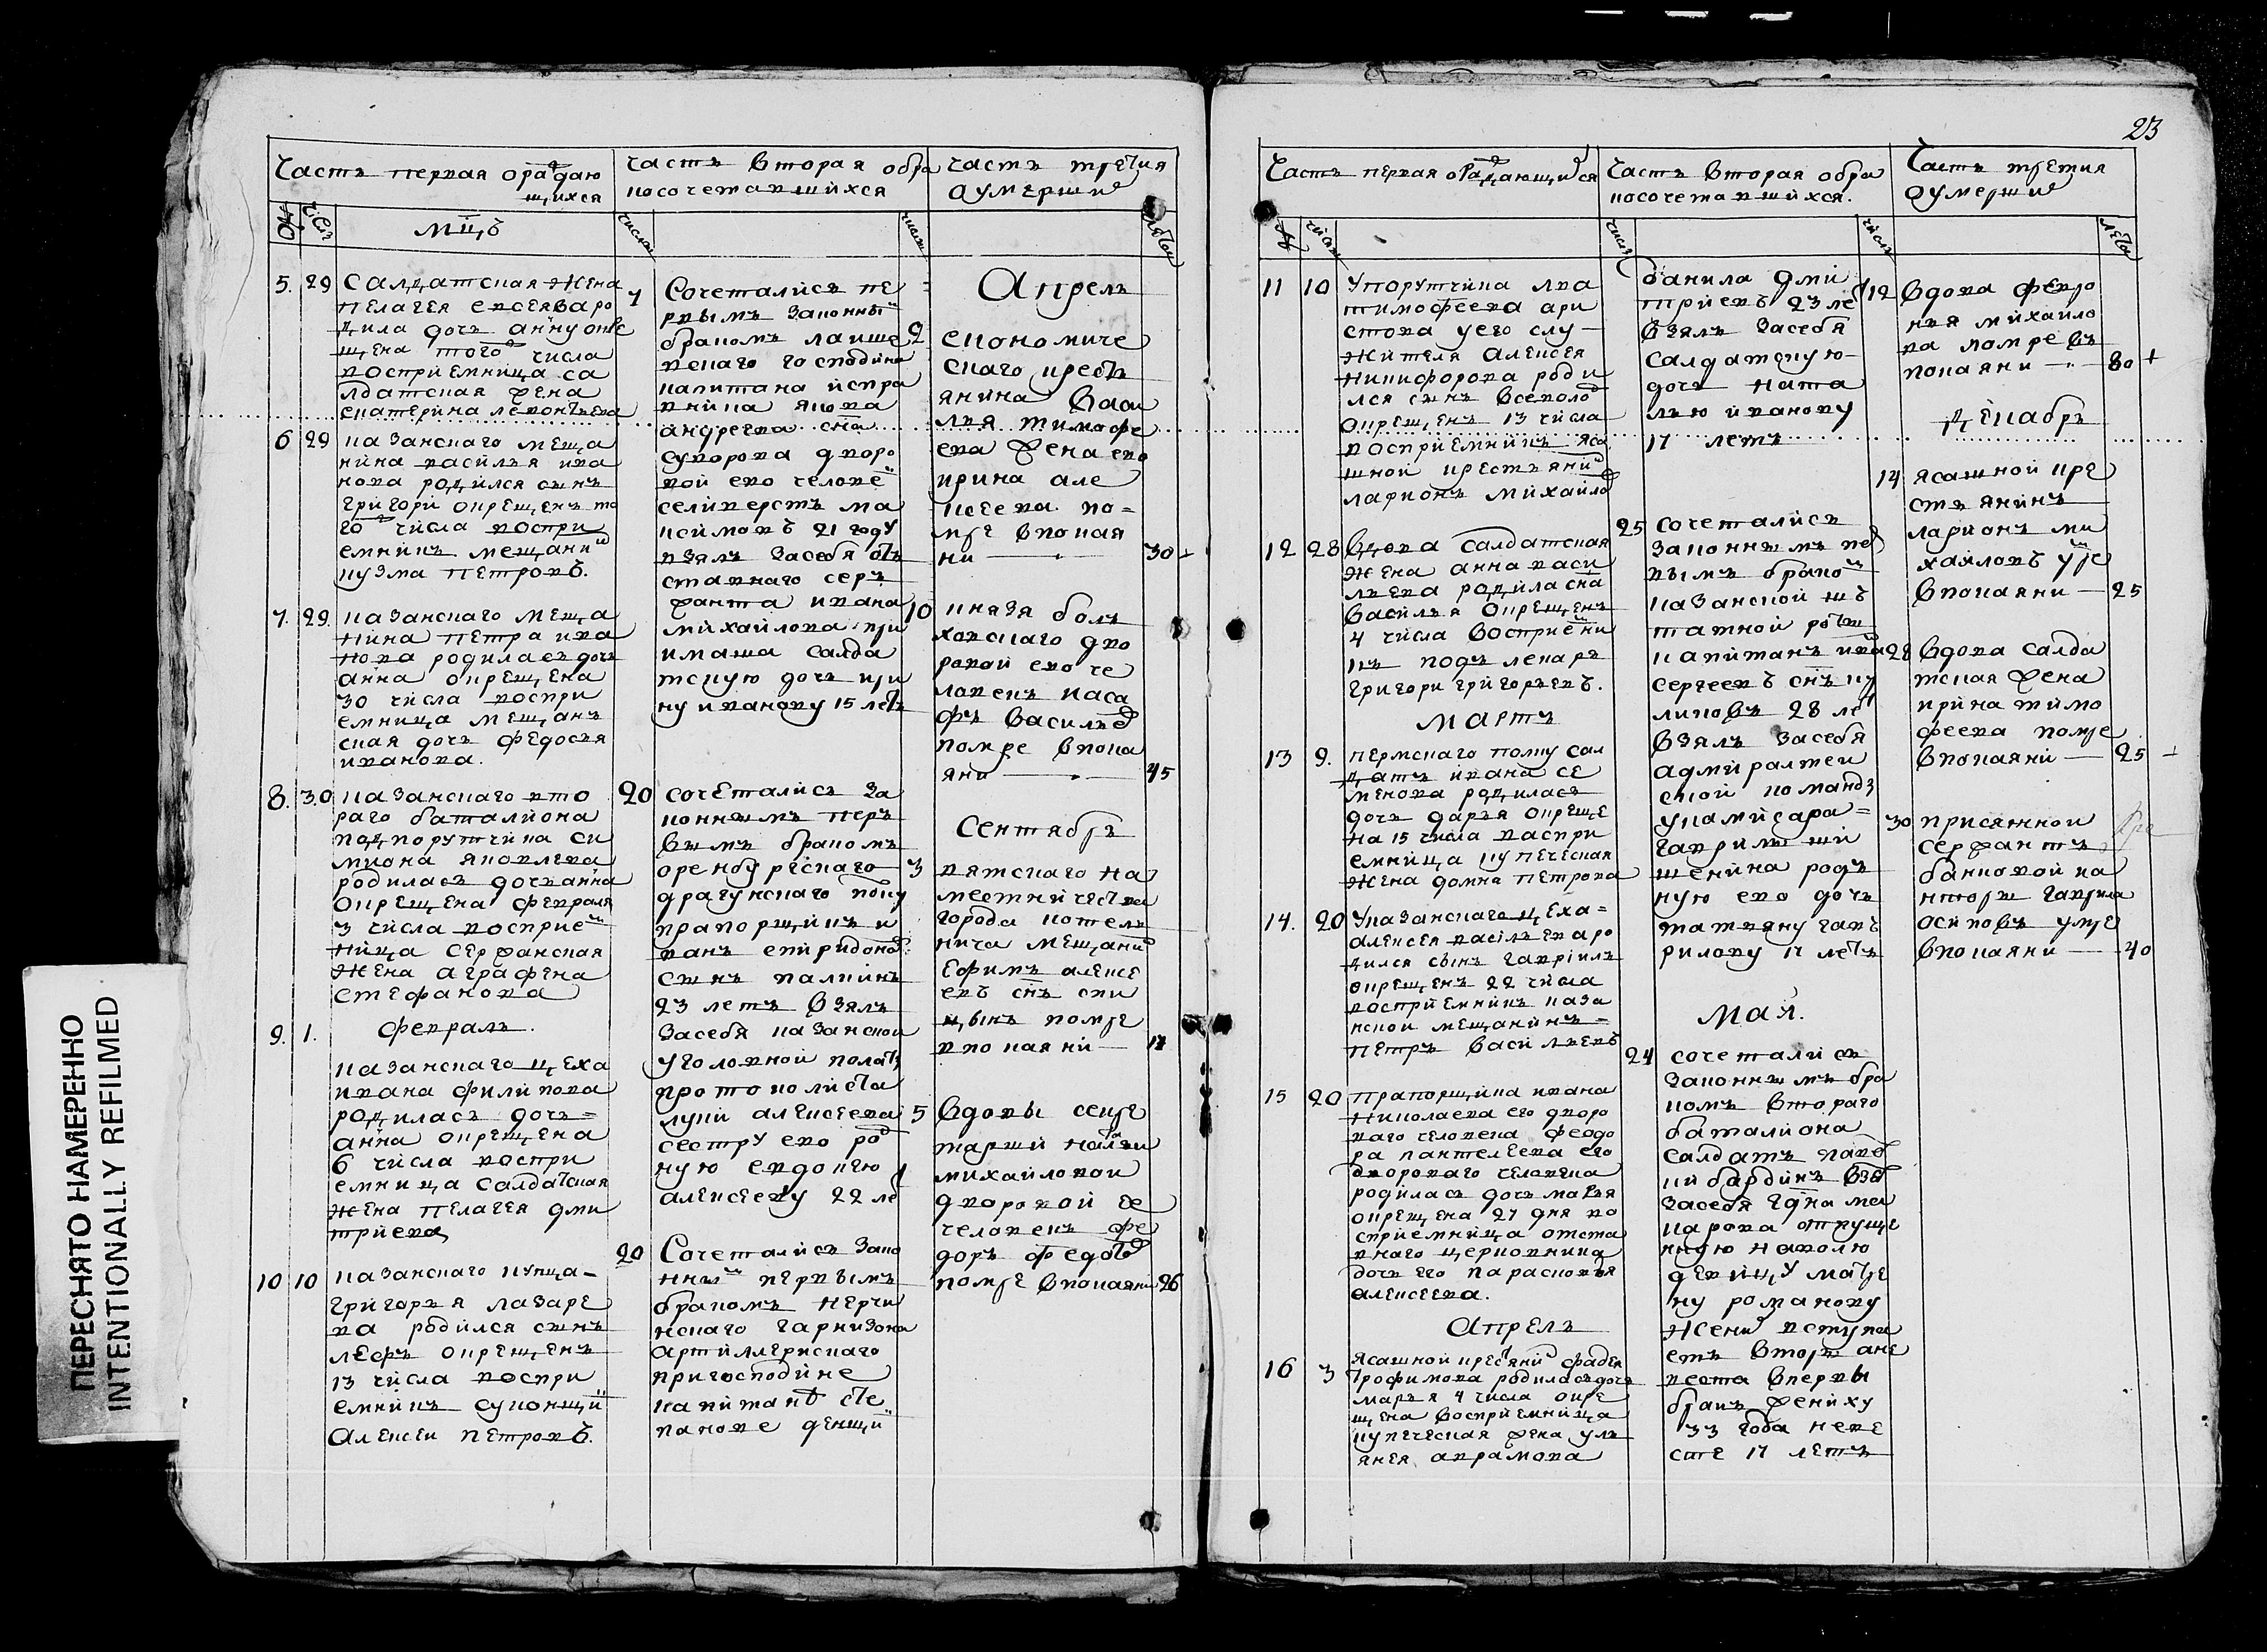 23
Часть первая о раждаю
щихся
Часть вторая о бра
косочетавшихся
Часть третия
о умерших
№
числ
мцъ
числа
числа
лета
5. 29 Салдатская жена
Пелагея евсева ро
дила дочь анну окре
щена того числа
восприемница са
лдатская жена
екатерина леонтьева
6 29 казанскаго меща
нина василья ива
нова родился сынъ
григори окрещенъ то
го числа воспри
емникъ мещанин
кузма петровъ.
7. 29. казанскаго меща
нина петра ива
нова родилась дочь
анна окрещена
30 числа воспри
емница мещан
ская дочь федосья
иванова.
8. 30 казанскаго вто
раго баталиона
подпорутчика си
миона яковлева
родилась дочь анна
окрещена февраля
3 числа восприем
ница сержанская
жена аграфена
стефанова
Февраль.
9. 1.
казанскаго цеха
ивана филипова
родилась дочь
анна окрещена
6 числа воспри
емница салдатская
жена пелагея дми
триева
10 10 казанскаго купца
григорья лазаре
ва родился сынъ
лефъ окрещенъ
13 числа воспри
емникъ суконщик
алексеи петровъ.
7 Сочетались пе
рвымъ законным
бракомъ лаише
вскаго господина
капитана испра
вника якова
андреева сна
суворова дворо
вой ево человек
селиверстъ ма
ксимовъ 21 году
взялъ засебя от
ставнаго сер
жанта ивана
михайлова при
имыша салда
тскую дочь ири
ну иванову 15 летъ
20 сочетались за
коннымъ пер
вымъ бракомъ
оренбурскаго
драгунскаго полку
прапорщикъ и
ванъ спиридонов
сынъ палкинъ
23 летъ взялъ
засебя казанской
уголовной палаты
протоколиста
луки алексеева
сестру ево род
ную евдокею
алексееву 22 лет
20 Сочетались зако
нным первымъ
бракомъ нерчи
нскаго гарнизона
артиллерискаго
пригосподине
капитане сте
панове денщик
Апрель
2 економиче
скаго кресть
янина васи
лья тимофе
ева жена ево
ирина але
ксеева по=
мре впокая
ни — 30
10 князя бол
ховскаго дво
ровой ево че
ловекъ иаса
фъ васильев
помре впока
яни — 45
Сентябрь
3 вятскаго на
местничества
города котель
нича мещанин
ефимъ алексе
евъ снъ ски
цынъ помре
впокаяни — 17
5 вдовы секре
тарши натальи
михайловои
дворовой ее
человекъ фе
доръ федотов
помре впокаяни 26
Часть первая о раждающихся
Часть вторая о бра
косочетавшихся.
Часть третия
о умерших
№
числа
числа
числа
лета
11 10 У порутчика льва
тимофеева ари
стова у его слу—
жителя алексея
никифорова роди
лся сынъ всеволод
окрещенъ 13 числа
восприемникъ яса
шной крестьянин
ларионъ михайлов
12 28 Вдова салдатская
жена анна васи
льева родила сна
василья окрещенъ
4 числа восприемни
къ подлекарь
григори григорьевъ.
Мартъ
13 9. пермскаго полку сал
датъ ивана се
менова родилась
дочь дарья окреще
на 15 числа воспри
емница купеческая
жена домна петрова
14. 20 У казанскаго цеха=
алексея васильева ро
дился сынъ гаврiилъ
окрещенъ 22 числа
восприемникъ каза
нской мещанинъ—
петръ васильевъ
15 20 прапорщика ивана
николаева его дворо
ваго человека федо
ра пантелеева его
двороваго человека
родилась дочь марья
окрещена 27 дня во
сприемница отста
внаго церковника
дочь его парасковья
алексеева.
Апрель
16 3 ясашной крестянин фадея
трофимова родилась дочь
марья 4 числа окре
щена восприемница
купеческая жена уль
янея аврамова
данила дми
триевъ 23 лет
взялъ засебя
салдатскую—
дочь ната
лью иванову
17 летъ
25 сочетались
законнымъ пер
вымъ браком
казанской шъ
татной роты
капитанъ иван
сергеевъ снъ ку
ликовъ 28 лет
взялъ засебя
адмиралтеи
ской команды
укомисара=
гаврилы ши
шенина род
ную ево дочь
татьяну гавъ
рилову 17 летъ
Май.
24 сочетались
законнымъ бра
комъ втораго
баталиона
салдатъ яков
ки бардинъ взял
засебя гдна ма
карова отпуще
нную наволю
девицу матре
ну романову
жених вступа
етъ вторы а не
веста впервы
бракъ жениху
33 года неве
сте 17 летъ
12 вдова февро
нья михайло
ва помре въ
покаяни — 80 +
Декабрь
14 ясашной кре
стьянинъ
ларионъ ми
хайловъ умре
впокаяни — 25
28 вдова салда
тская жена
ирина тимо
феева помре
впокаяни — 25
30 присяжной
сержантъ
банковой ка
нторы гаврила
осиповъ умре
впокаяни — 40
ПЕРЕСНЯТО НАМЕРЕННО
INTENTIONALLY REFILMED